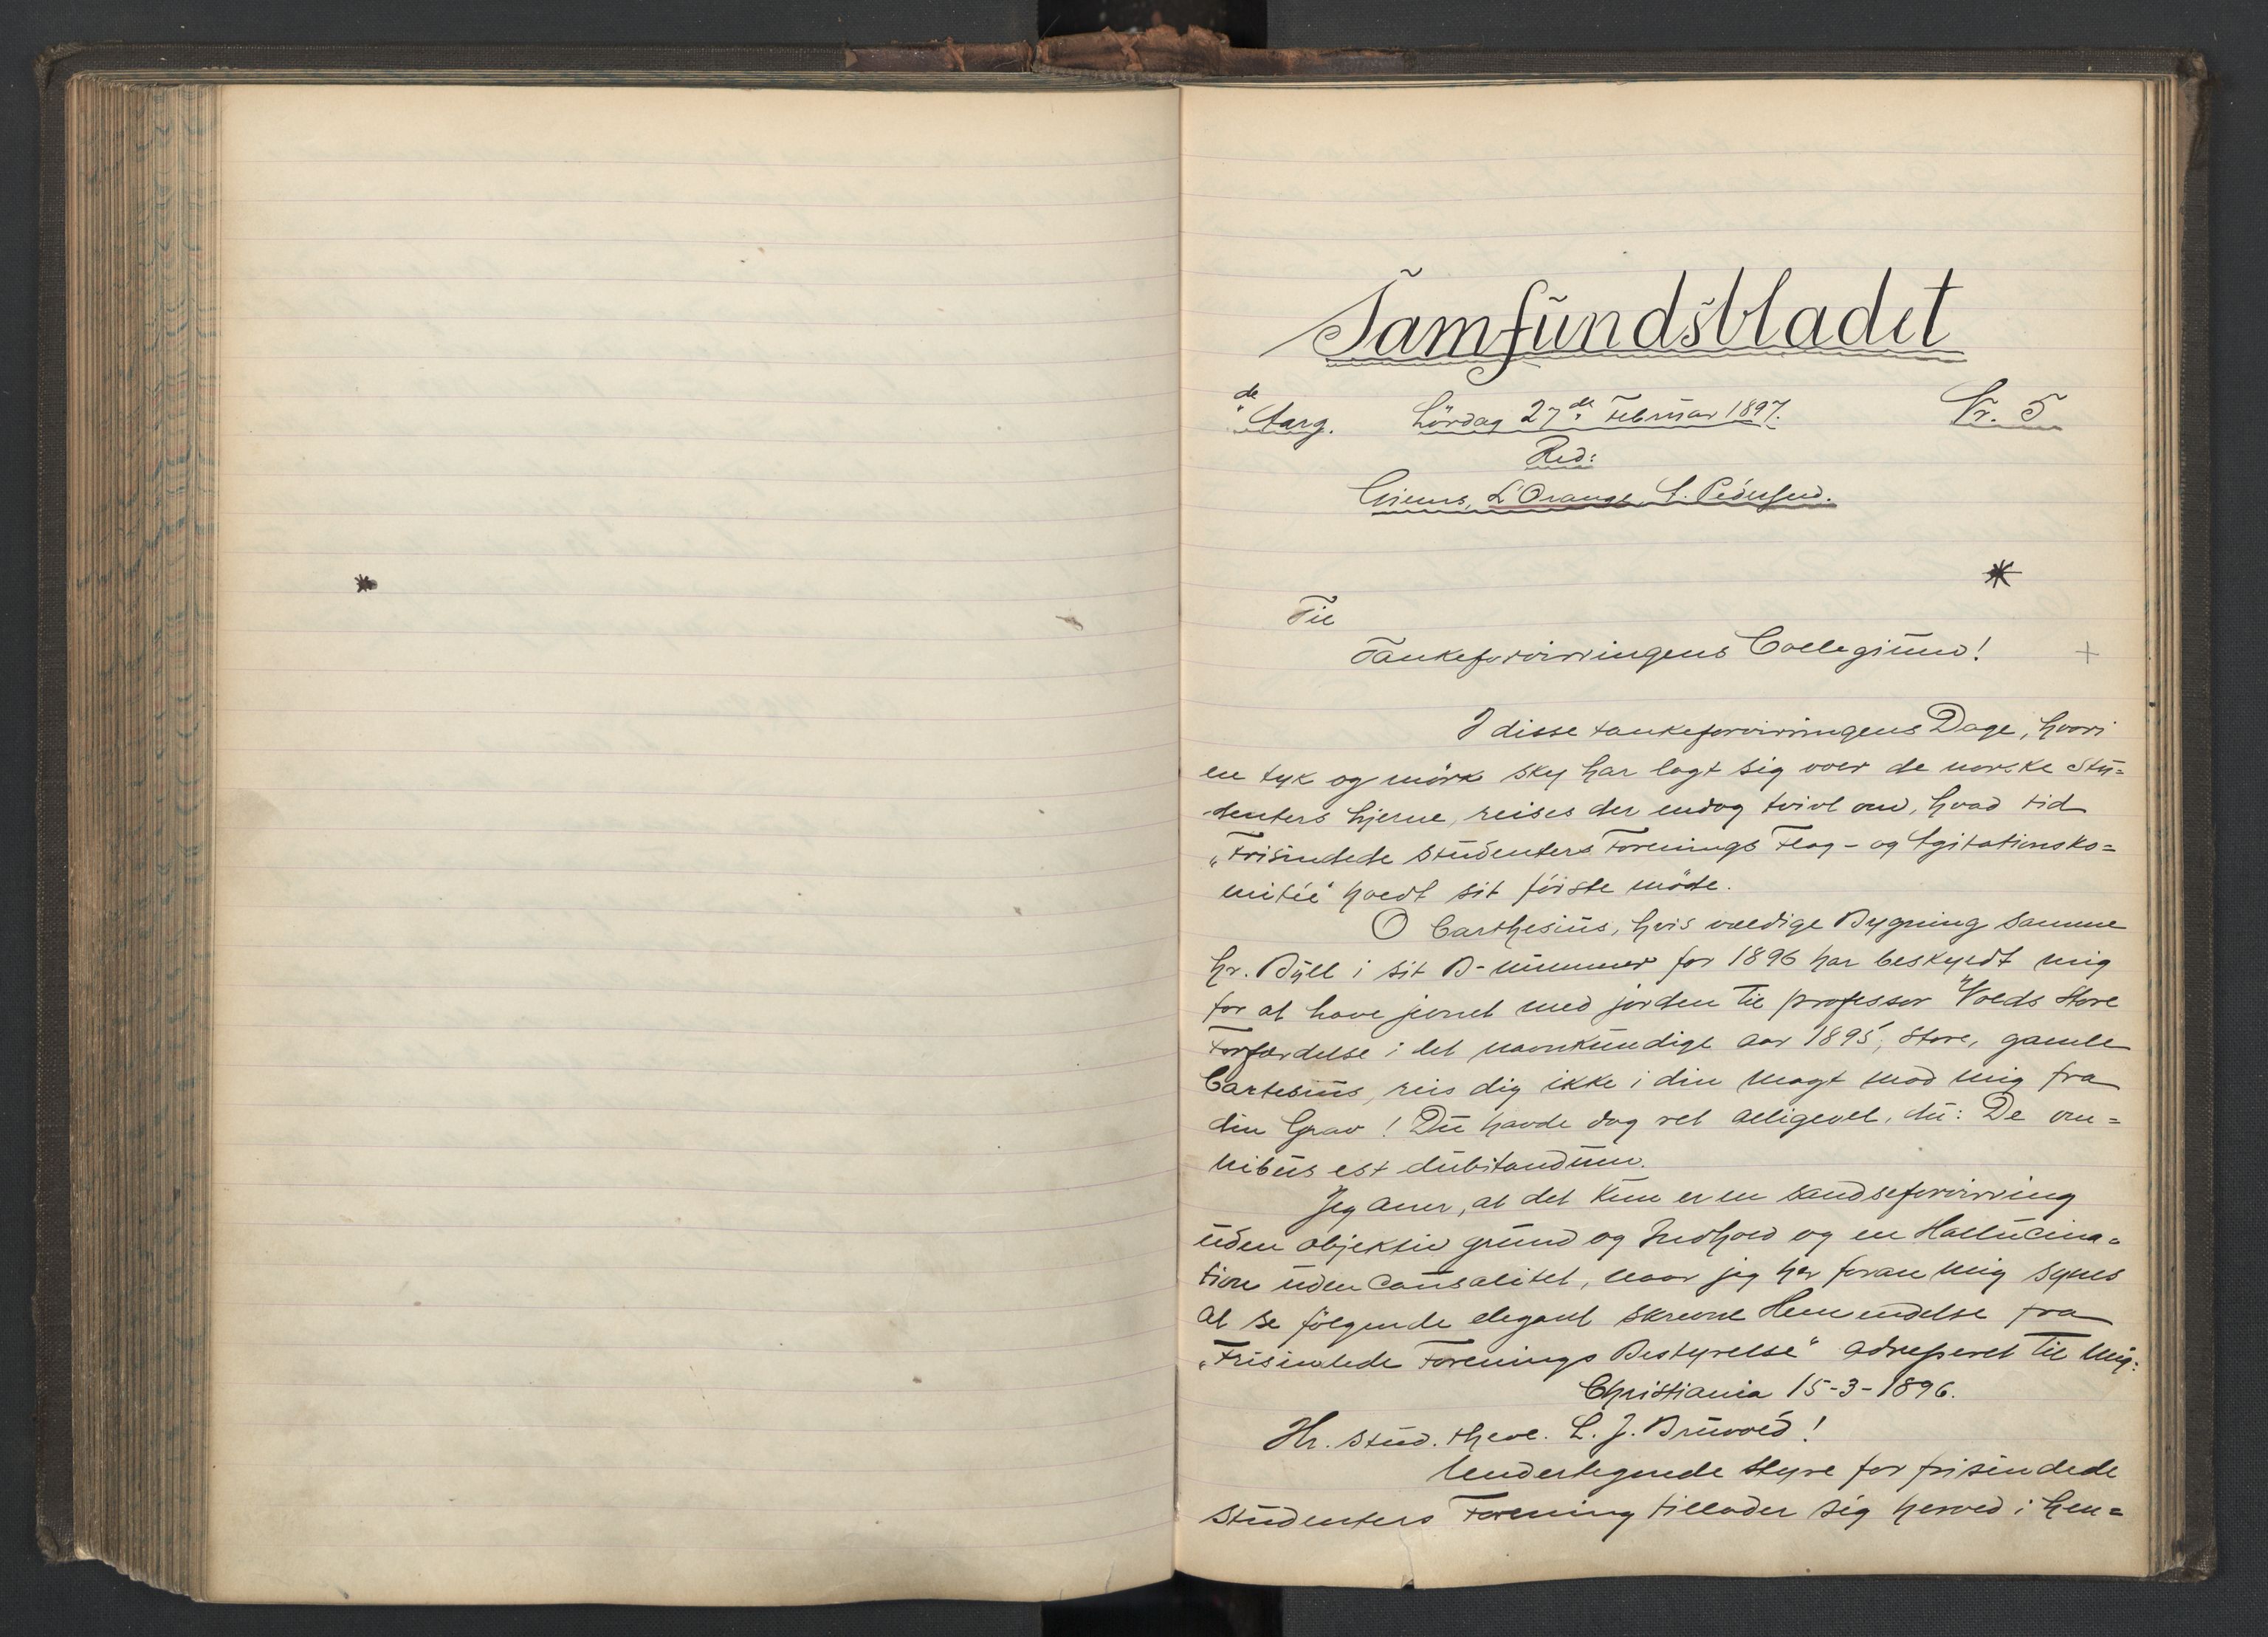 Samfundsbladet
de Aarg. Lördag 27de Februar 1897. Nr. 5
Red:
L'Orange, S. Pedersen.
Til
Tankeforvirringens Collegium!
I disse tankeforvirringens Dage, hvori
en tyk og mörk sky har lagt sig over de norske Stu=
denters hjerne, reises der endog tvivl om, hvad tid
"Frisindede Studenters Forenings Flag- og Agitationsko=
mitée" holdt sit förste möde.
O Carthesius, hvis vældige Bygning samme
hr. Büll i sit B-nummer for 1896 har beskyldt mig
for at have jevnet med jorden til professor Volds store
Forfærdelse i det navnkundige aar 1895, store, gamle
Cartesius, reis dig ikke i din magt mod mig fra
din Grav! Du havde dog ret alligevel, du: De om=
nibus est dubitandum.
Jeg aner, at det kun er en sandseforvirring
uden objektiv grund og Indhold og en Hallucina=
tion uden Causalitet, naar jeg her foran mig synes
at se fölgende elegant skrevne Henvendelse fra
"Frisindede Forenings Bestyrelse" adresseret til mig:
Christiania 15-3-1896.
Hr. stud. theol. L. J. Bruvold!
Undertegnede styre for frisindede
Studenters Forening tillader sig herved i hen=